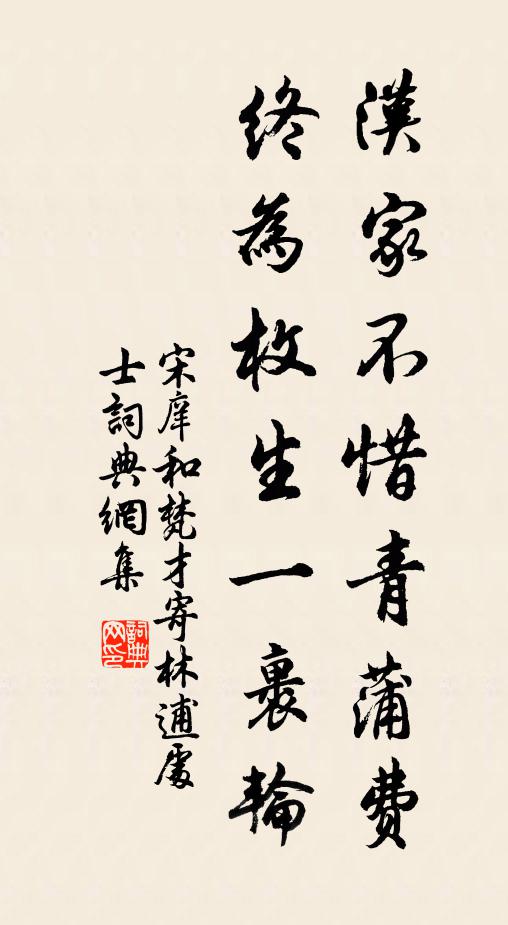 漢家不惜青蒲費
終為枚生一裹輪
宋庠和梵才寄林逋處
士詞典網集
詞典網印